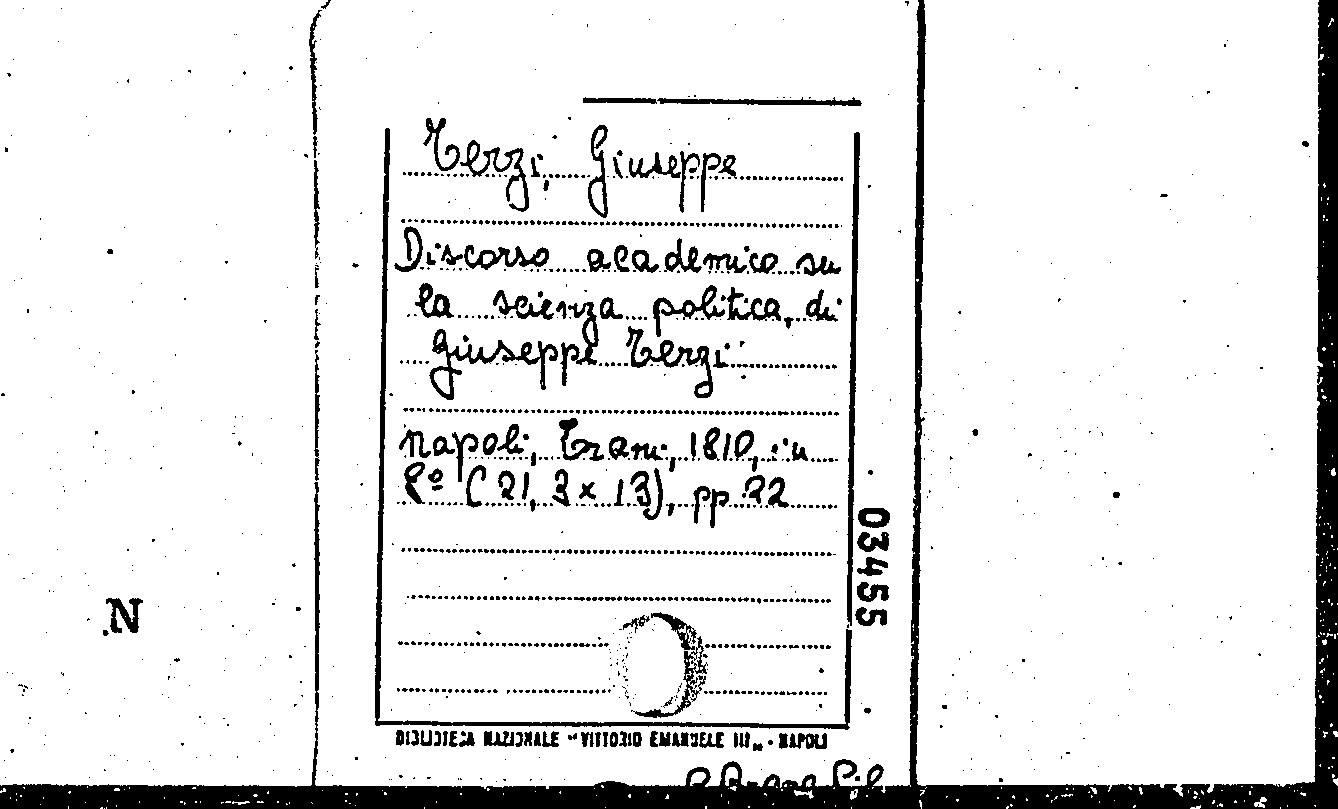 Terzi, Giuseppe
Discorso academico su
la scienza politica, di
Giuseppe Terzi
Napoli, Trani, 1810, in
8º (21,3 x 13), pp 22
03455
N
BIBLIOTECA NAZIONALE "VITTORIO EMANUELE III" - NAPOLI